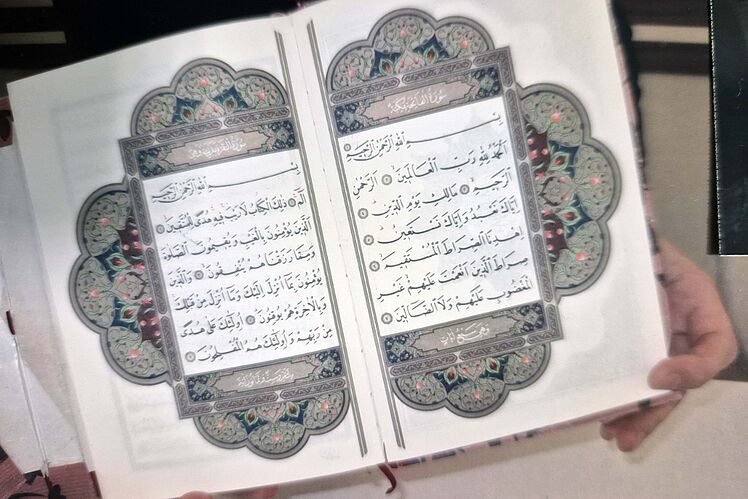 سُورَةُ الْفَاتِحَةِ مَكِّيَّةٌ
بِسْمِ اللّٰهِ الرَّحْمٰنِ الرَّحِيمِ
اَلْحَمْدُ لِلّٰهِ رَبِّ الْعَالَمِينَ اَلرَّحْمٰنِ
الرَّحِيمِ مَالِكِ يَوْمِ الدِّينِ
اِيَّاكَ نَعْبُدُ وَاِيَّاكَ نَسْتَعِينُ
اِهْدِنَا الصِّرَاطَ الْمُسْتَقِيمَ
صِرَاطَ الَّذِينَ اَنْعَمْتَ عَلَيْهِمْ غَيْرِ
الْمَغْضُوبِ عَلَيْهِمْ وَلَا الضَّالِّينَ
وَهِيَ سَبْعُ اٰيَاتٍ
سُورَةُ الْبَقَرَةِ
بِسْمِ اللّٰهِ الرَّحْمٰنِ الرَّحِيمِ
الٓمٓ ذٰلِكَ الْكِتَابُ لَا رَيْبَ فِيهِ هُدًى لِلْمُتَّقِينَ
اَلَّذِينَ يُؤْمِنُونَ بِالْغَيْبِ وَيُقِيمُونَ الصَّلٰوةَ
وَمِمَّا رَزَقْنَاهُمْ يُنْفِقُونَ وَالَّذِينَ
يُؤْمِنُونَ بِمَا اُنْزِلَ اِلَيْكَ وَمَا اُنْزِلَ مِنْ قَبْلِكَ
وَبِالْاٰخِرَةِ هُمْ يُوقِنُونَ اُولٰئِكَ عَلٰى هُدًى
مِنْ رَبِّهِمْ وَاُولٰئِكَ هُمُ الْمُفْلِحُونَ